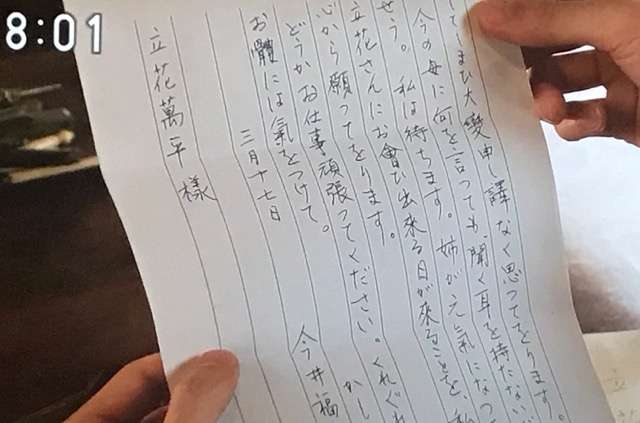 8:01
てしまひ大變申し譯なく思つてをります。
今の母に何を言つても、聞く耳を持たない
せう。私は待ちます。姉が元氣になつ
立花さんにお會ひ出来る日が來ることを、私
心から願つてをります。
どうかお仕事頑張つてください。くれぐれ
お體には氣をつけて。 かし
三月十七日 今井福
立花萬平様